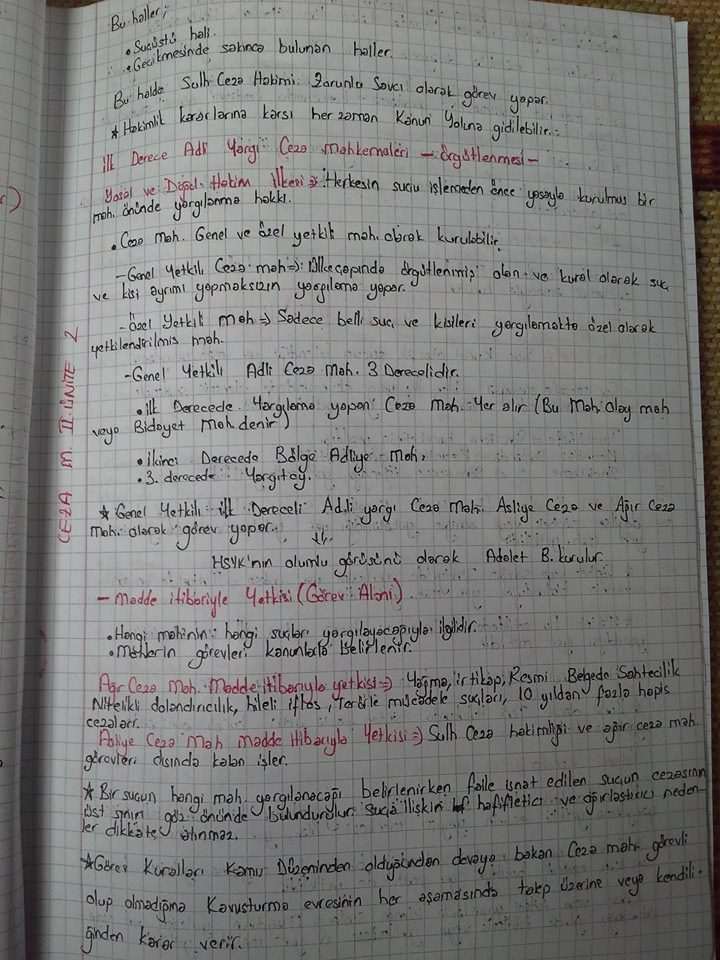 Bu haller;
• Suçüstü hali.
• Gecikmesinde sakınca bulunan haller.
Bu halde Sulh Ceza Hakimi Zorunlu Savcı olarak görev yapar.
* Hakimlik kararlarına karşı her zaman Kanun Yoluna gidilebilir.
İlk Derece Adli Yargı Ceza Mahkemeleri - Örgütlenmesi -
Yasal ve Doğal Hakim İlkesi => Herkesin suçu işlemeden önce yasayla kurulmuş bir
mah. önünde yargılanma hakkı.
• Ceza Mah. Genel ve özel yetkili mah. olarak kurulabilir.
- Genel Yetkili Ceza mah => Ülke çapında örgütlenmiş olan ve kural olarak suç
ve kişi ayrımı yapmaksızın yargılama yapar.
- Özel Yetkili Mah => Sadece belli suç ve kişileri yargılamakta özel olarak
yetkilendirilmiş mah.
- Genel Yetkili Adli Ceza Mah. 3 Derecelidir.
• İlk Derecede Yargılama yapan Ceza Mah. Yer alır (Bu Mah. Olay mah
veya Bidayet Mah denir)
• İkinci Derecede Bölge Adliye Mah.
• 3. derecede Yargıtay.
* Genel Yetkili ilk Dereceli Adli yargı Ceza Mah. Asliye Ceza ve Ağır Ceza
mah. olarak görev yapar.
HSYK'nın olumlu görüşünü alarak Adalet B. kurulur.
- Madde itibariyle Yetkisi (Görev Alanı)
• Hangi mah'nin hangi suçları yargılayacağıyla ilgilidir.
• Mah'lerin görevleri kanunlarla belirlenir.
Ağır Ceza Mah. Madde itibarıyla yetkisi => Yağma, irtikap, Resmi Belgede Sahtecilik
Nitelikli dolandırıcılık, hileli iflas, Terörle mücadele suçları, 10 yıldan fazla hapis
cezaları.
Asliye Ceza Mah madde itibarıyla Yetkisi => Sulh Ceza hakimliği ve ağır ceza mah.
görevleri dışında kalan işler.
* Bir suçun hangi mah. yargılanacağı belirlenirken faile isnat edilen suçun cezasının
üst sınırı göz önünde bulundurulur. Suça ilişkin hafifletici ve ağırlaştırıcı neden-
ler dikkate alınmaz.
* Görev Kuralları Kamu Düzeninden olduğundan davaya bakan Ceza mah. görevli
olup olmadığına Kovuşturma evresinin her aşamasında talep üzerine veya kendili-
ğinden karar verir.
CEZA M. II. ÜNİTE 2